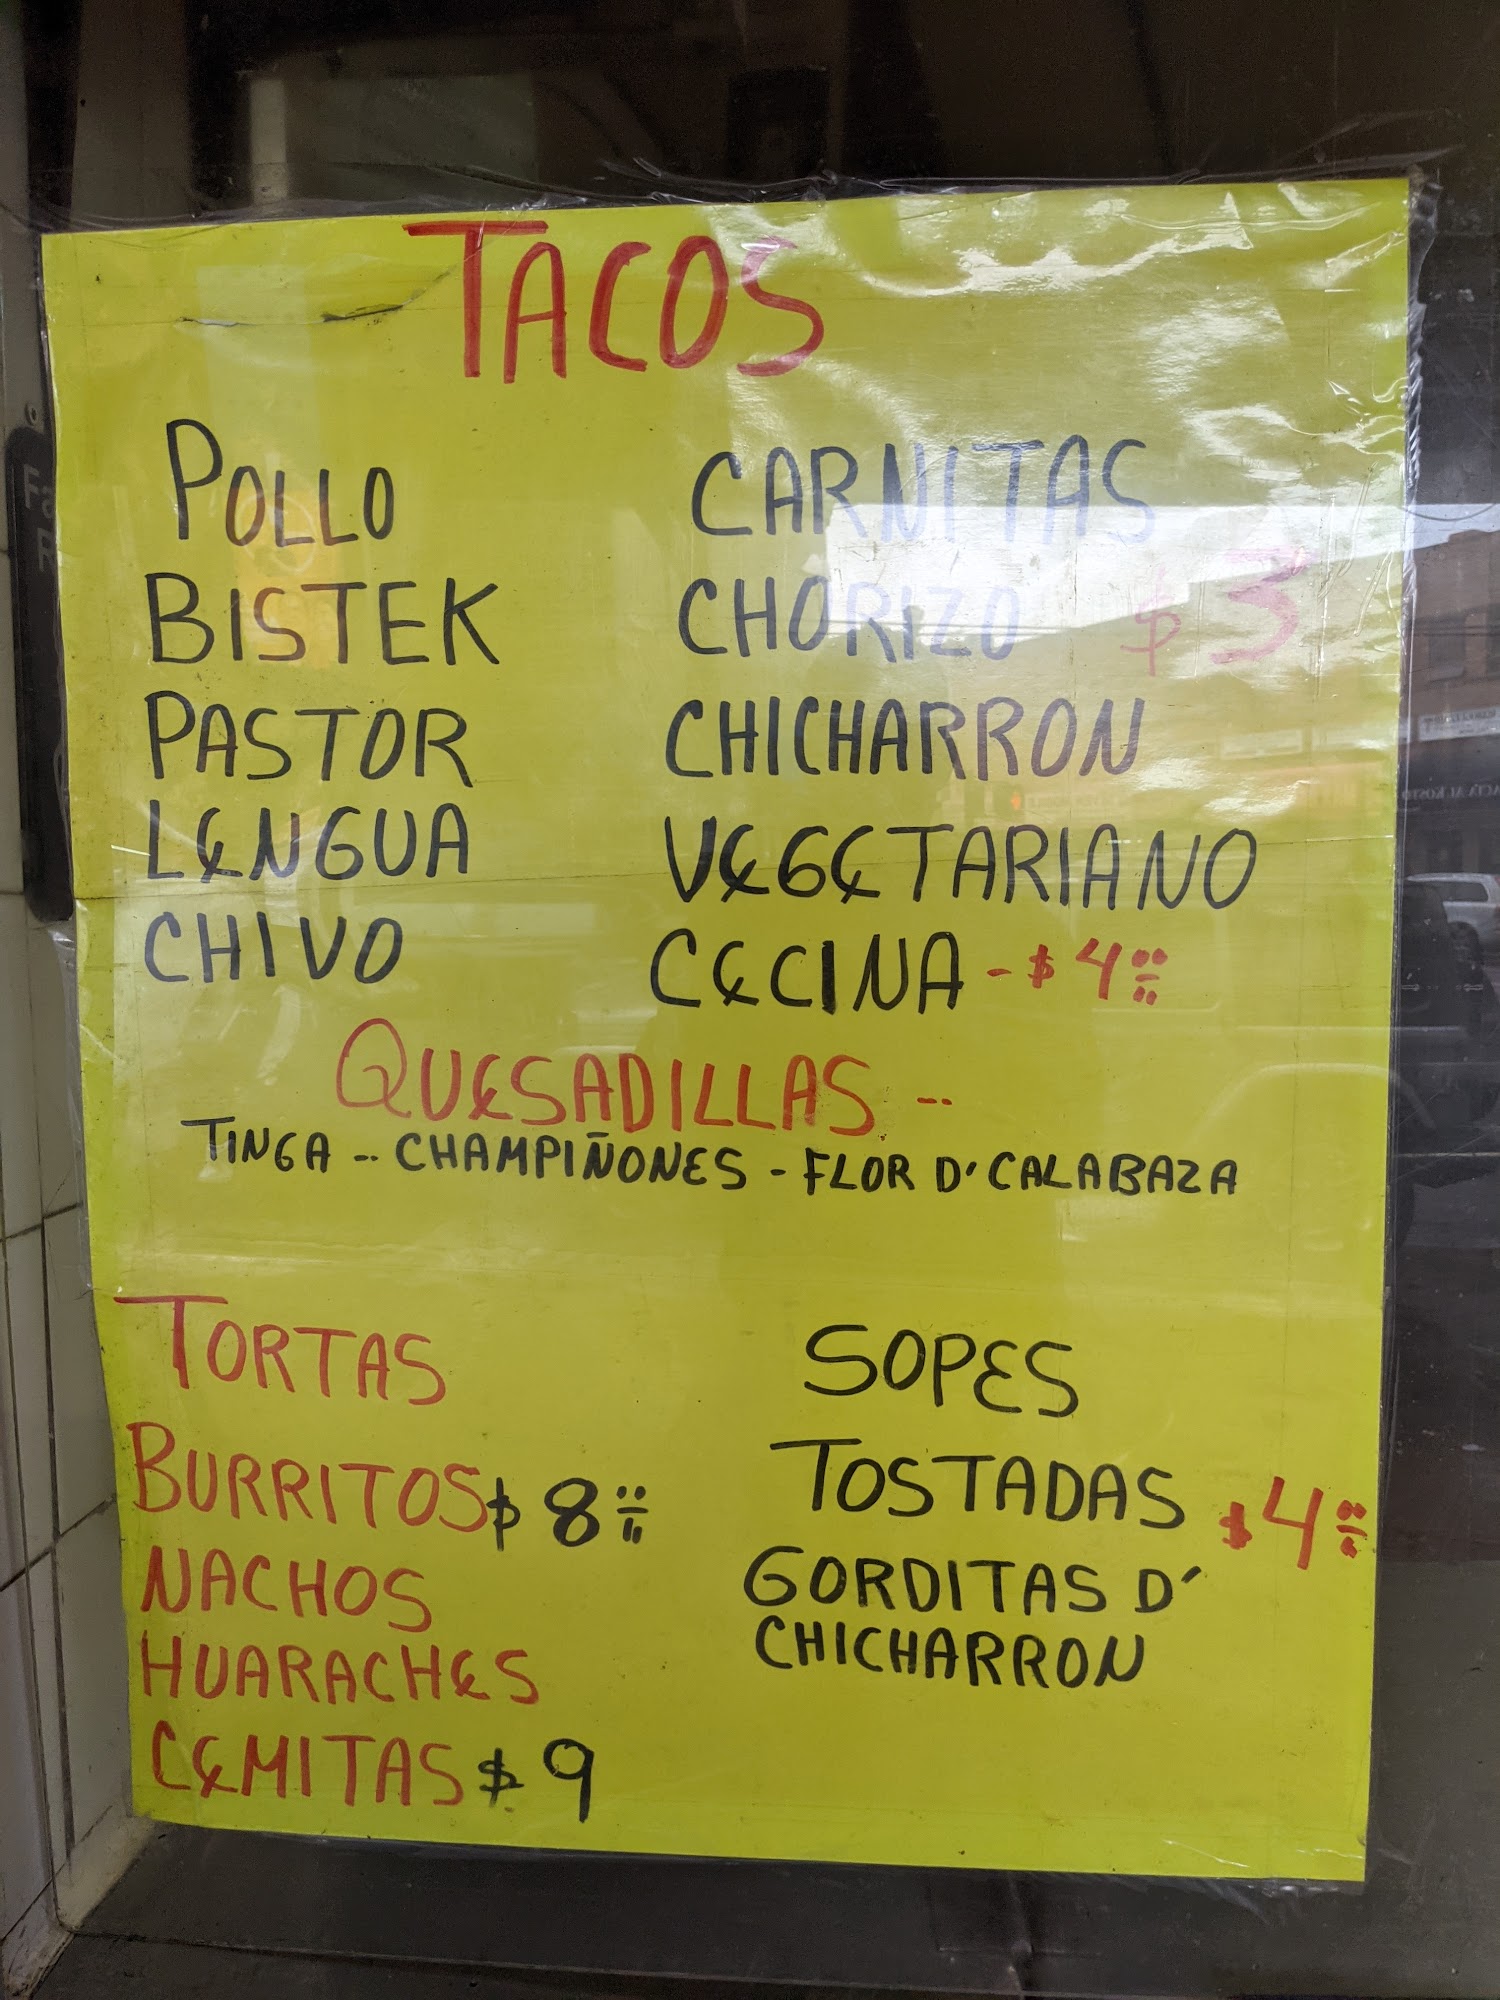 TACOS
POLLO CARNITAS
BISTEK CHORIZO $3
PASTOR CHICHARRON
LENGUA VEGETARIANO
CHIVO CECINA - $4.00
QUESADILLAS --
TINGA -- CHAMPIÑONES - FLOR D' CALABAZA
TORTAS SOPES
BURRITOS $8.00 TOSTADAS $4.00
NACHOS GORDITAS D'
HUARACHES CHICHARRON
CEMITAS $9